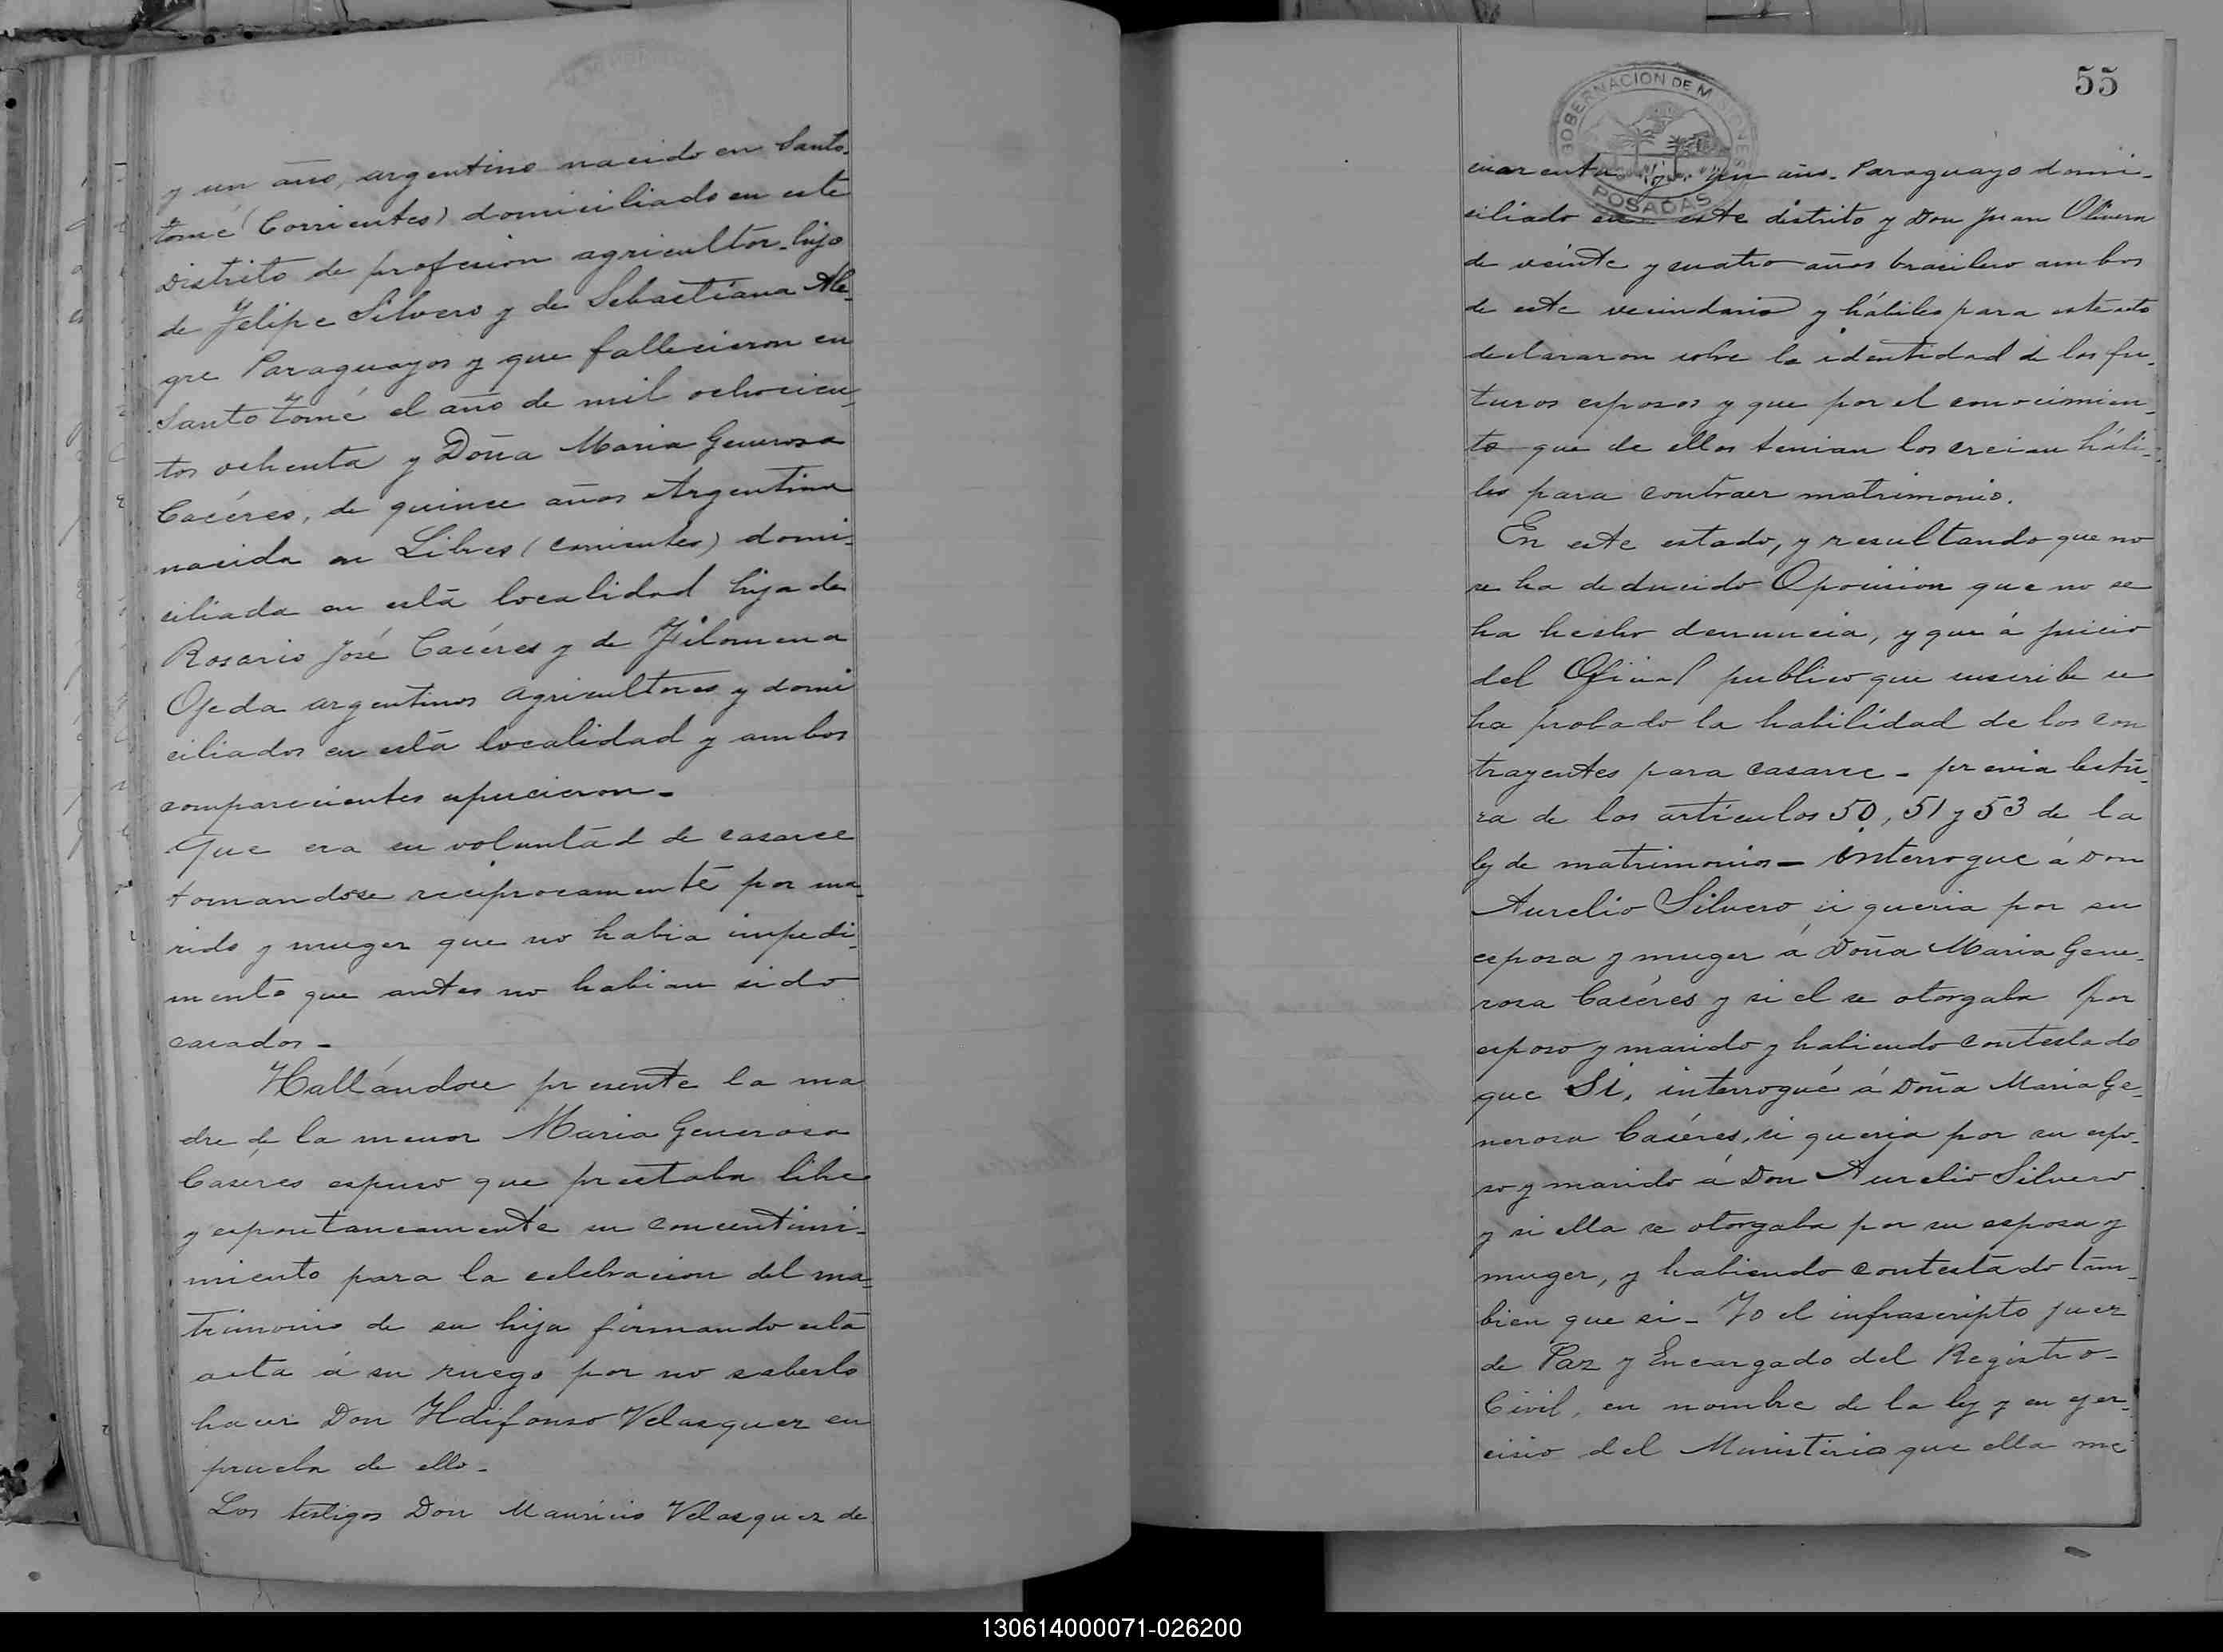 y un año, argentino nacido en Santo-
tomé (Corrientes) domiciliado en este
Distrito de profesion agricultor. hijo
de Felipe Silvero y de Sebastiana Ale-
gre Paraguayos y que fallecieron en
Santo tomé el año de mil ochocien-
tos ochenta y Doña Maria Generosa
Cacéres, de quince años Argentina
nacida en Libres (Corrientes) domi-
ciliada en está localidad hija de
Rosario José Cacéres y de Filomena
Ojeda argentinos agricultores y domi
ciliados en está localidad y ambos
comparecientes espucieron-
Que era su voluntad de casarce
tomandose reciprocamente por ma-
rido y muger que no habia impedi-
mento que antes no habian sido
casados-
Hallándose presente la ma
dre de la menor Maria Generosa
Caseres espuso que prestaba libre
y espontaneamente su concentimi-
miento para la celebracion del ma-
trimonio de su hija firmando esta
acta á su ruego por no saberlo
hacer Don Ildifonso Velasquez en
prueba de ello-
Los testigos Don Mauricio Velasquez de
55
GOBERNACION DE MISIONES
POSADAS
cuarenta y un años. Paraguayo domi-
ciliado en este distrito y Don Juan Olivera
de veinte y cuatro años brasilero ambos
de este vecindario y hábiles para este acto
declararon sobre la identidad de los fu-
turos esposos y que por el conocimien-
to que de ellos tenian los creian hábi-
les para contraer matrimonio.
En este estado, y resultando que no
se ha deducido Oposicion que no se
ha hecho denuncia, y que á juicio
del Oficial publico que suscribe se
ha probado la habilidad de los con
trayentes para casarce - previa lectu-
ra de los artículos 50, 51 y 53 de la
ley de matrimonio - interrogue á Don
Aurelio Silvero si queria por su
esposa y muger á Doña Maria Gene-
rosa Cacéres y si el se otorgaba por
esposo y marido y habiendo contestado
que Si, interrogué á Doña Maria Ge-
nerosa Caséres, si queria por su espo-
so y marido á Don Aurelio Silvero
y si ella se otorgaba por su esposa y
muger, y habiendo contestado tam-
bien que si - Yo el infrascripto juez
de Paz y Encargado del Registro-
Civil, en nombre de la ley y en ejer-
cisio del Ministerio que ella me
130614000071-026200